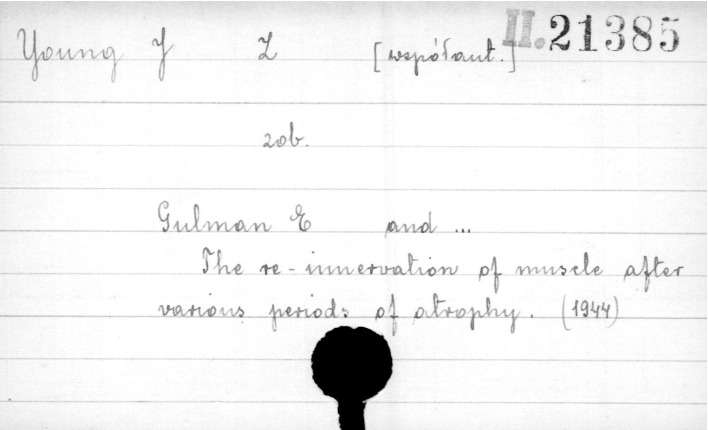 Young J Z [współaut.] II.21385
zob.
Gulman E and ...
The re-innervation of muscle after
various periods of atrophy. (1944)